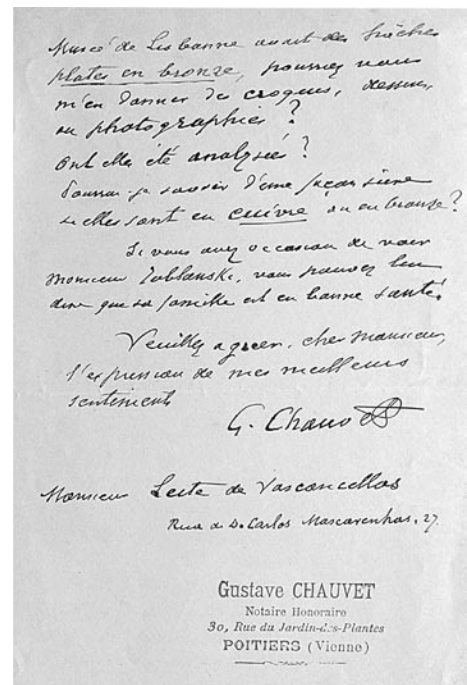 Musée de Lisbonne avait des flèches
plates en bronze, pourriez vous
m'en donner des croquis, dessins,
ou photographies?
Ont elles été analysées?
Pourrai-je savoir d'une façon sûre
si elles sont en cuivre ou en bronze?
Si vous avez occasion de voir
Monsieur Zoblanski, vous pouvez lui
dire que sa famille est en bonne santé.
Veuillez agréer, cher Monsieur,
l'expression de mes meilleurs
sentiments
G. Chauvet
Monsieur Leite de Vasconcellos
Rua de D. Carlos Mascarenhas, 27.
Gustave CHAUVET
Notaire Honoraire
30, Rue du Jardin-des-Plantes
POITIERS (Vienne)